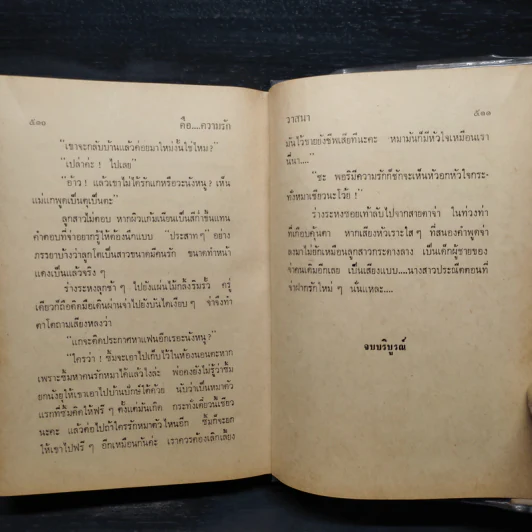 ๕๑๐ คือ....ความรัก
"เขาจะกลับบ้านแล้วค่อยมาใหม่งั้นใช่ไหม?"
"เปล่าค่ะ ! ไปเลย"
"อ้าว ! แล้วเขาไม่ได้รักแกหรือวะนังหนู ? เห็น
แม่แกพูดเป็นตุเป็นตะ"
ลูกสาวไม่ตอบ หากผิวแก้มเนียนเป็นสีก่ำขึ้นแทน
คำตอบที่จ่าอยากรู้ให้ต้องนึกแบบ "ประสาทๆ" อย่าง
ภรรยาบ้างว่าลูกโตเป็นสาวขนาดมีคนรัก ขนาดทำหน้า
แดงเป็นแล้วจริง ๆ
ร่างระหงลุกช้า ๆ ไปยังแผ่นไม้กลิ้งริมรั้ว ครู่
เดียวก็ถือติดมือเดินผ่านจ่าไปยังบันไดเงียบ ๆ จ่าจึงทำ
ตาโตถามเสียงหลงว่า
"แกจะคิดประกาศหาแฟนอีกเรอะนังหนู ?"
"ใครว่า ! ซ้มจะเอาไปเก็บไว้ในห้องนอนตะหาก
เพราะซ้มหาคนรักหมาได้แล้วไงล่ะ พ่อคงยังไม่รู้ว่าซ้ม
ยกนังตูให้เขาเอาไปบ้านบึกษ์ได้ด้วย นับว่าเป็นหมาตัว
แรกที่ซ้มคิดให้ฟรี ๆ ตั้งแต่มันเกิด กระทั่งเดี๋ยวนี้เชียว
นะคะ แล้วต่อไปถ้าใครรักหมาตัวไหนอีก ซ้มก็จะยก
ให้เขาไปฟรี ๆ อีกเหมือนกันค่ะ เราควรต้องเลิกเลี้ยง
วาสนา ๕๑๑
มันไว้ขายยังชีพเสียทีนะคะ หมามันก็มีหัวใจเหมือนเรา
นี่นา...."
"ชะ พอริมีความรักก็ชักจะเห็นหัวอกหัวใจกระ-
ทั่งหมาเชียวนะโว้ย !"
ร่างระหงซอยเท้าลับไปจากสายตาจ่า ในท่วงท่า
ที่เกือบคุ้นตา หากเสียงหัวเราะใส ๆ ที่สนองคำพูดจ่า
ลงมาไม่ยักเหมือนลูกสาวกระด้างลาง เป็นเด็กผู้ชายของ
จ่าคนเดิมอีกเลย เป็นเสียงแบบ....นางสาวประณีตตอนที่
จ่าฝากรักใหม่ ๆ นั่นแหละ....
จบบริบูรณ์